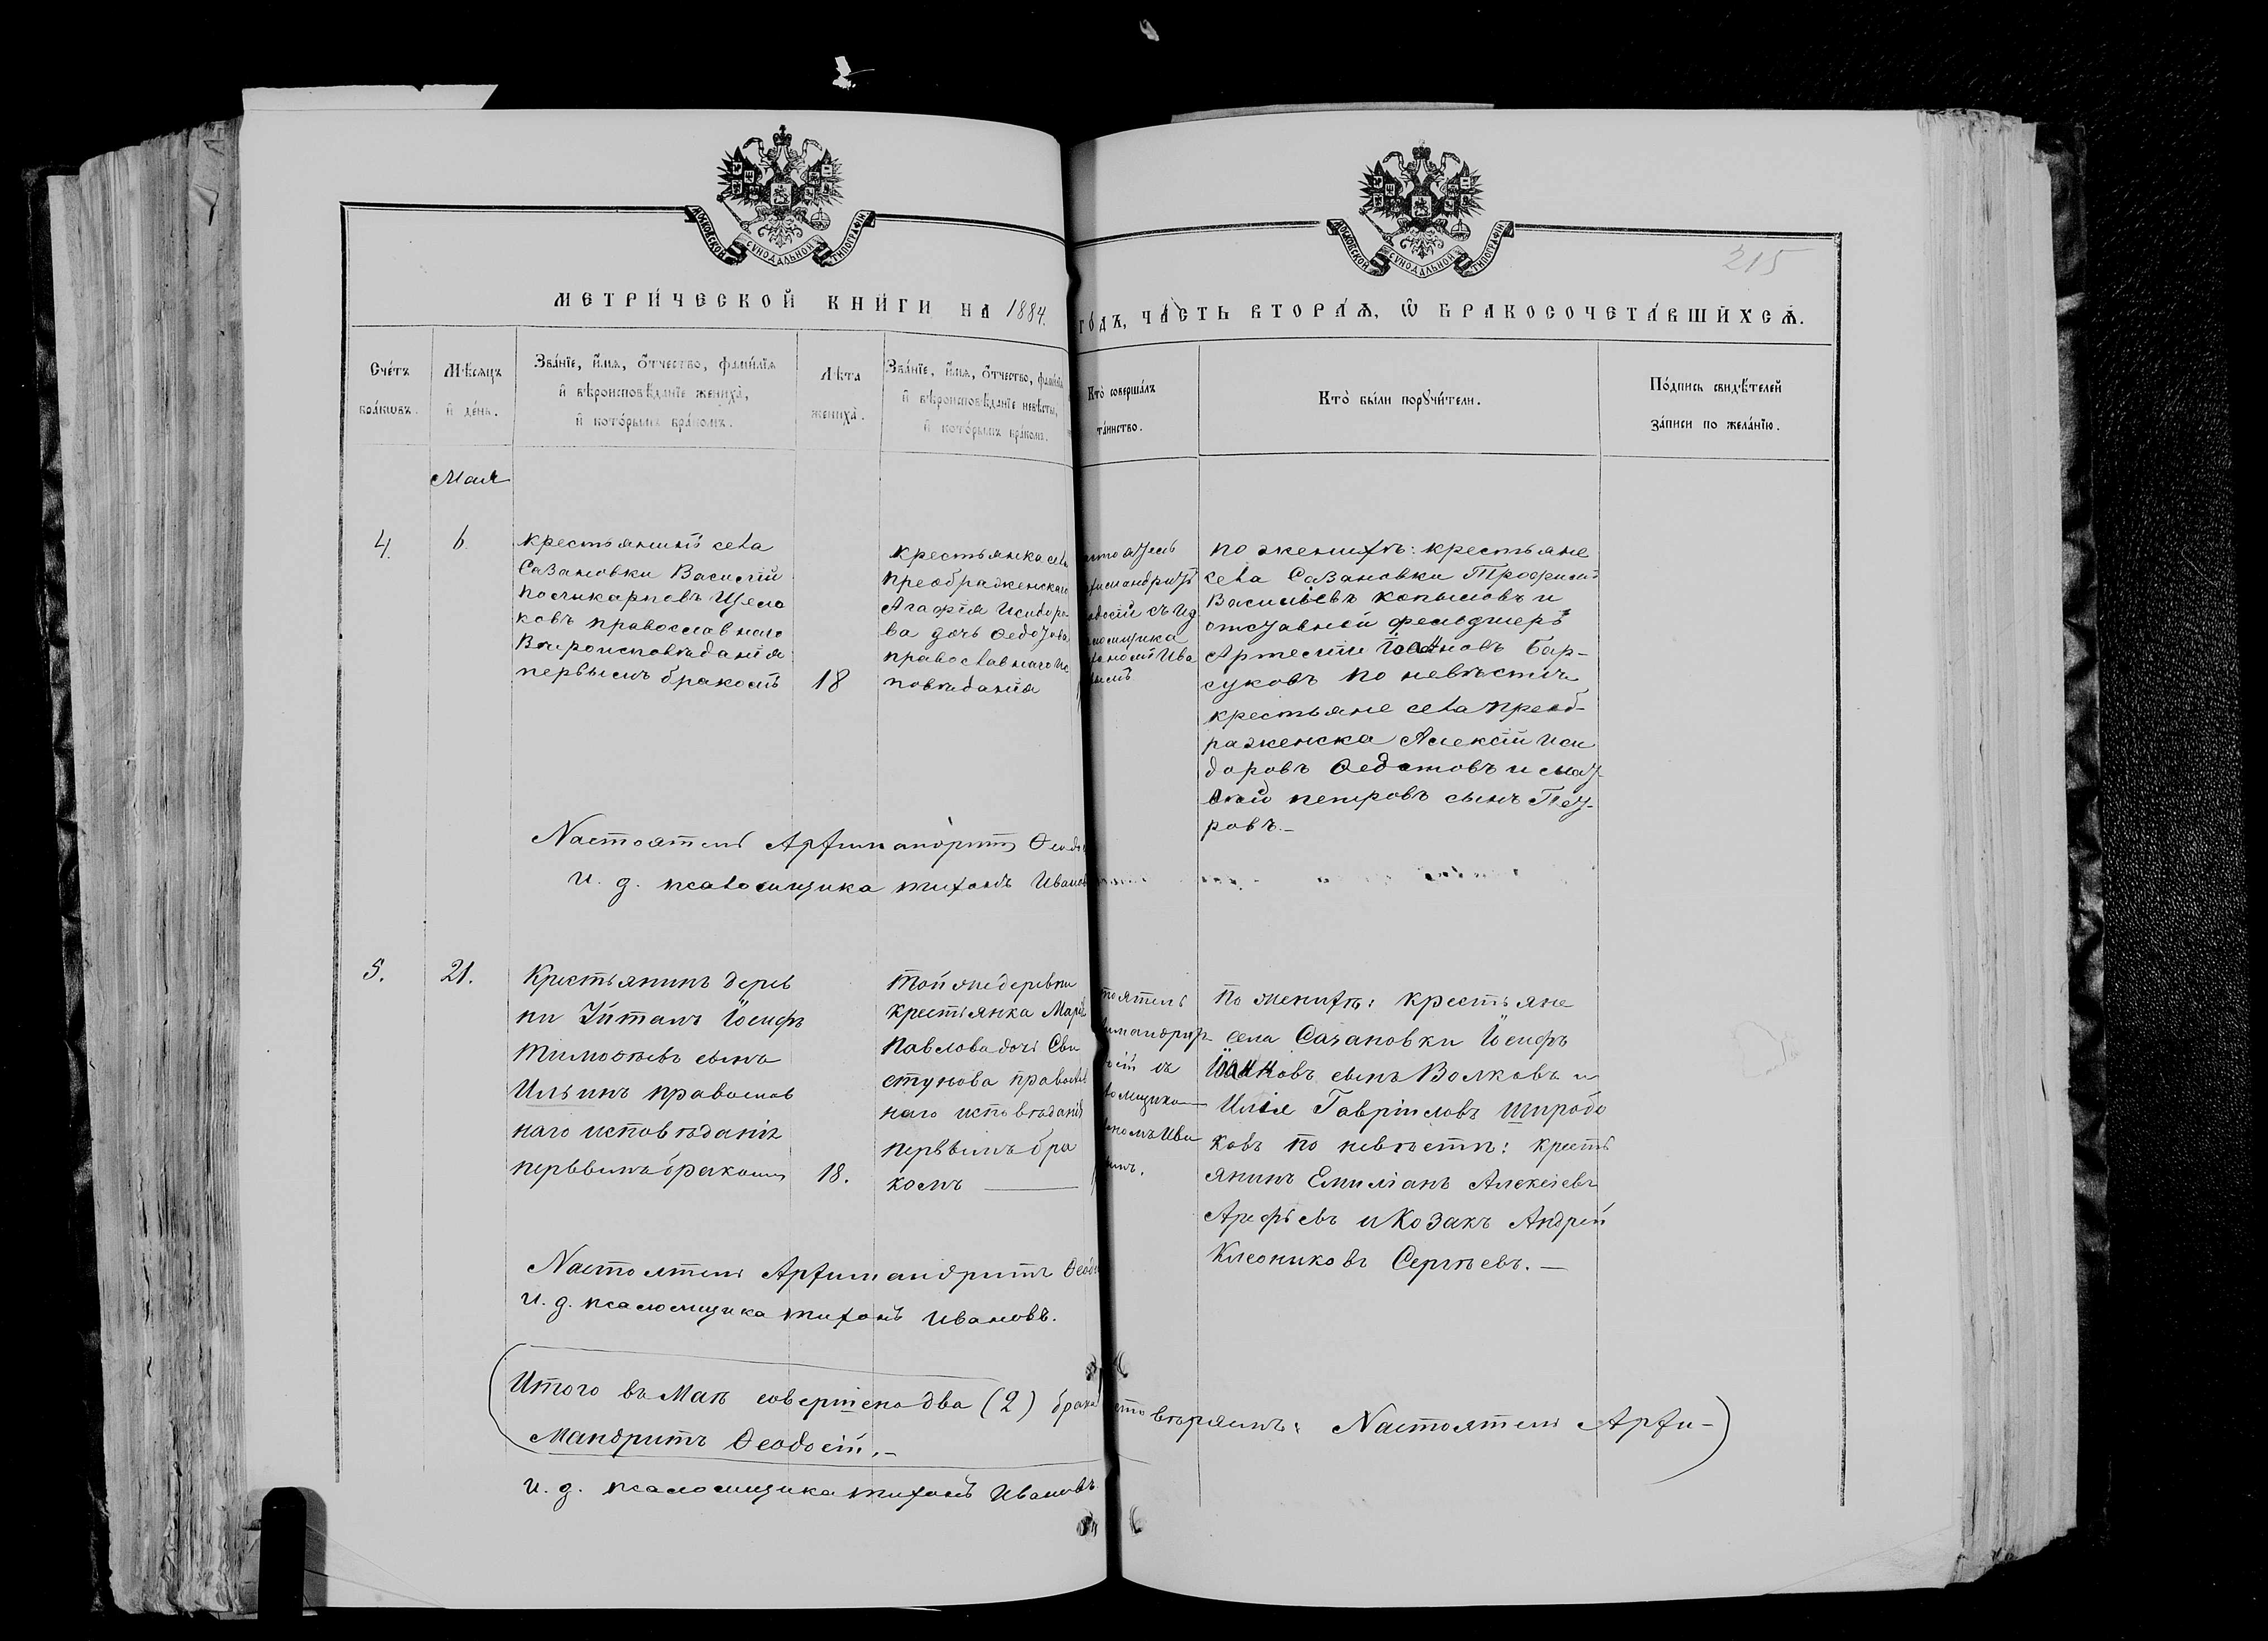 МОСКОВСКОЙ СѴНОДАЛЬНОЙ ТИПОГРАФІИ
МОСКОВСКОЙ СѴНОДАЛЬНОЙ ТИПОГРАФІИ
215
МЕТРИ́ЧЕСКОЙ КНИ́ГИ НА 1884.
ГО́ДЪ, ЧА́СТЬ ВТОРА́Ѧ, Ѽ БРАКОСОЧЕТА́ВШИХСѦ.
Сче́тъ
бра́кѡвъ.
Мѣ́сяцъ
и де́нь.
Зва́нїе, и́мя, о́тчество, фами́лїя
и вѣроисповѣ́данїе жениха̀,
и кото́рымъ бра́комъ.
Лѣ́та
жениха̀.
Зва́нїе, и́мя, о́тчество, фами́лїя
и вѣроисповѣ́данїе невѣ́сты,
и кото́рымъ бра́комъ.
Кто̀ соверша́лъ
та́инство.
Кто̀ бы́ли порꙋчи́тели.
По́дпись свидѣ́телей
за́писи по жела́нїю.
Мая
4.
6.
крестьянинъ села
Сазановки Василій
поликарповъ Щела
ковъ православнаго
Вѣроисповѣданія
первымъ бракомъ
18
крестьянка села
преображенскаго
Агафія Исидоро
ва дочь Ѳедотова
православнаго ис
повѣданія
по женихѣ: крестьяне
села Сазановки Трофимъ
Васильевъ копыловъ и
отставной фельдшеръ
Артемій Іоанновъ Бар-
суковъ по невѣстѣ
крестьяне села преоб-
раженска Алексій Иси
доровъ Ѳедотовъ и
петровъ сынъ Пет-
ровъ.-
Настоятель Архимандритъ Ѳеодо
и. д. псаломщика тихонъ Ивановъ
5.
21.
Крестьянинъ дерев
ни Уйталъ Іосифъ
Тимоѳеевъ сынъ
Ильинъ православ
наго исповѣданія
первымъ бракомъ
18.
той же деревни
крестьянка Марія
Павлова дочь Сви
стунова православ
наго исповѣданія
первымъ бра
комъ
тоятель
имандрит
сій съ
ломщико
ономъ Ива
вымъ.
по женихѣ: крестьяне
села Сазановки Іосифъ
Іоанновъ сынъ Волковъ и
Илія Гавріиловъ Широбо
ковъ по невѣстѣ: кресть
янинъ Емиліанъ Алексіевъ
Арефьевъ и Козакъ Андрей
Клеониковъ Сергѣевъ.-
Настоятель Архимандритъ Ѳеодо
и. д. псаломщика тихонъ Ивановъ.
Итого въ Маѣ совершено два (2) брака
сто вѣряемъ: Настоятель Архи-
мандритъ Ѳеодосій.-
и. д. псаломщика тихонъ Ивановъ.